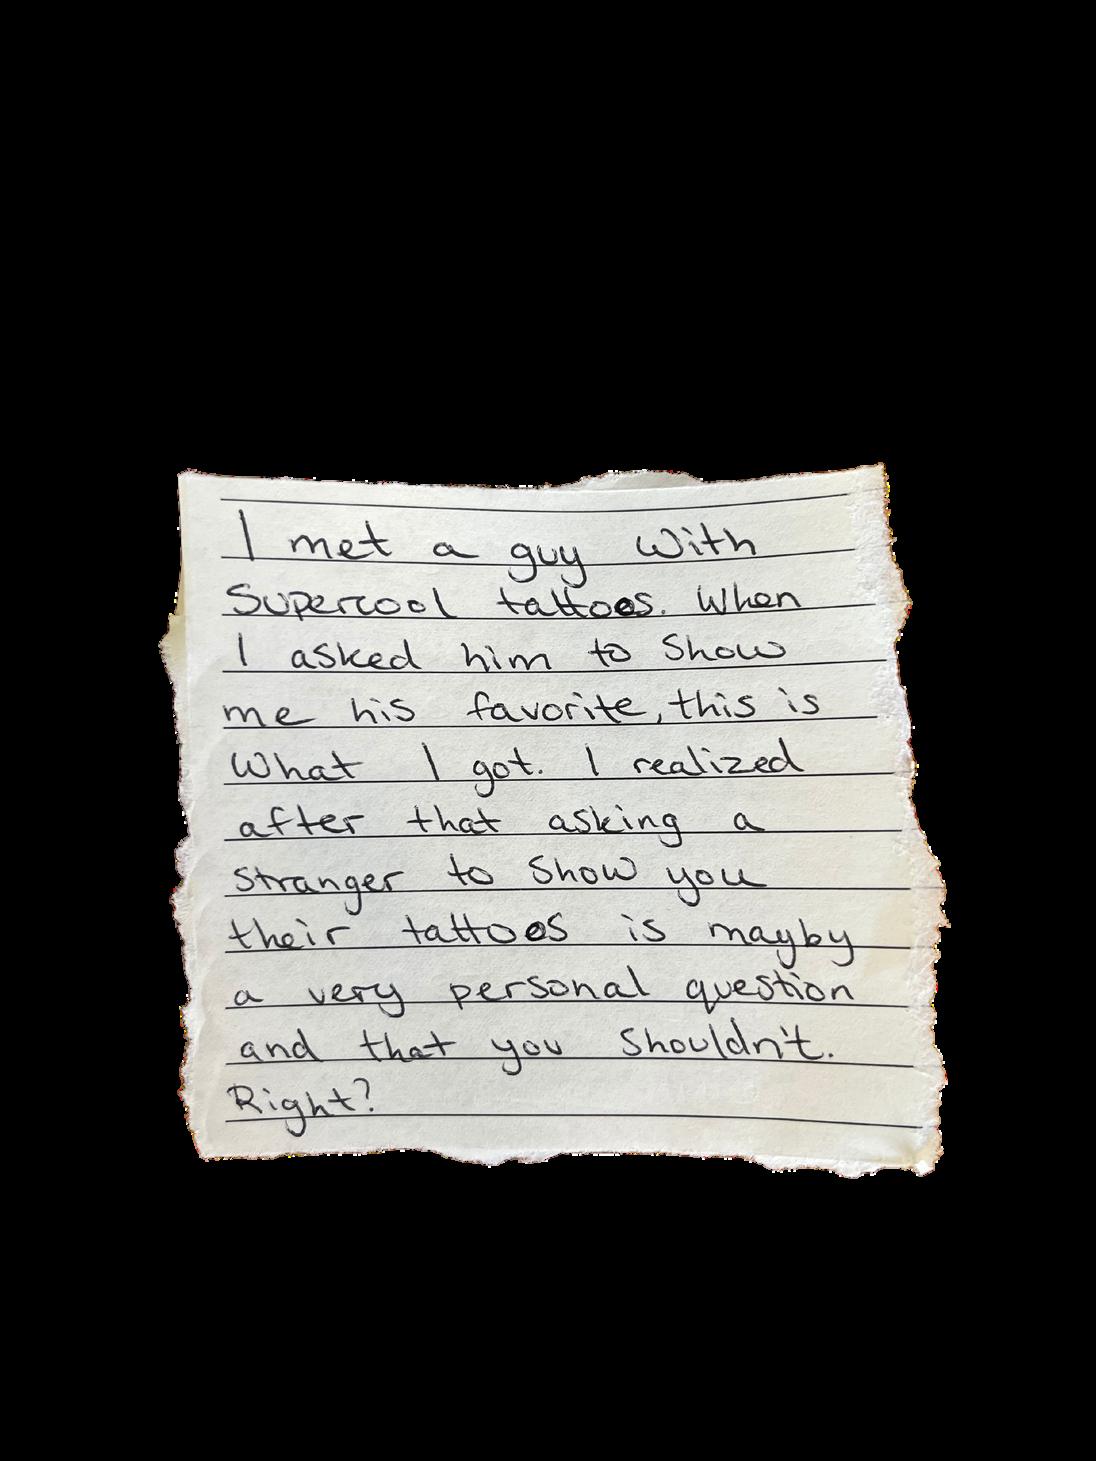 I met a guy with
Supercool tattoes. When
I asked him to show
me his favorite, this is
What I got. I realized
after that asking a
stranger to show you
their tattoes is mayby
a very personal question
and that you shouldn't.
Right?